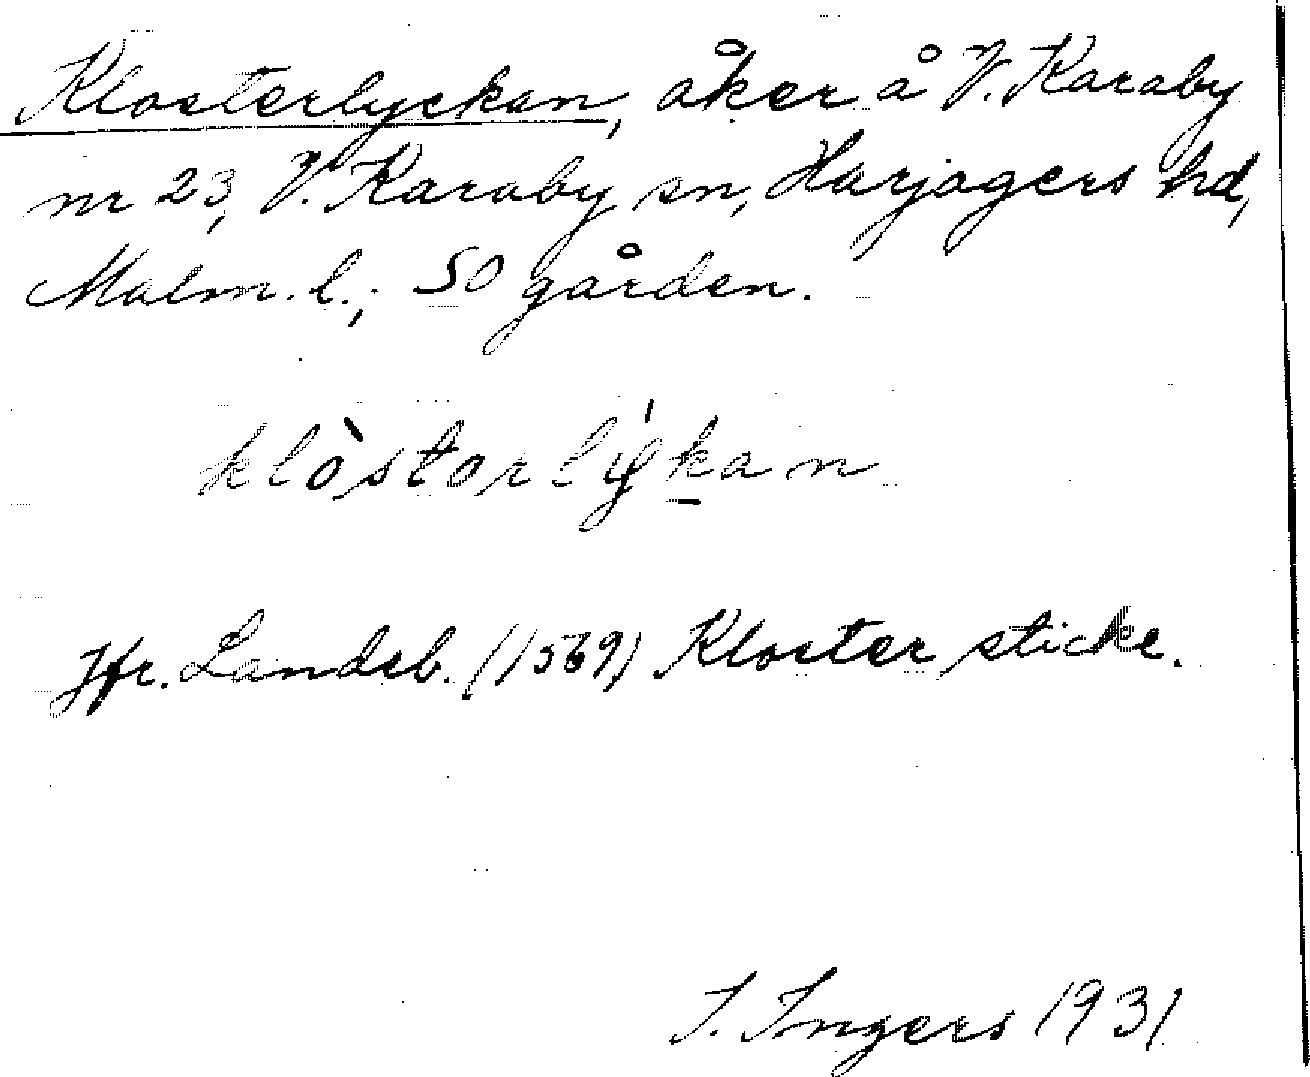 Klosterlyckan, åker å V. Karaby
nr 23, V. Karaby sn, Harjagers hd,
Malm. l.; SO gården.
klòstorlýkan
Jfr. Landeb. (1569) Kloster sticke.
I. Ingers 1931